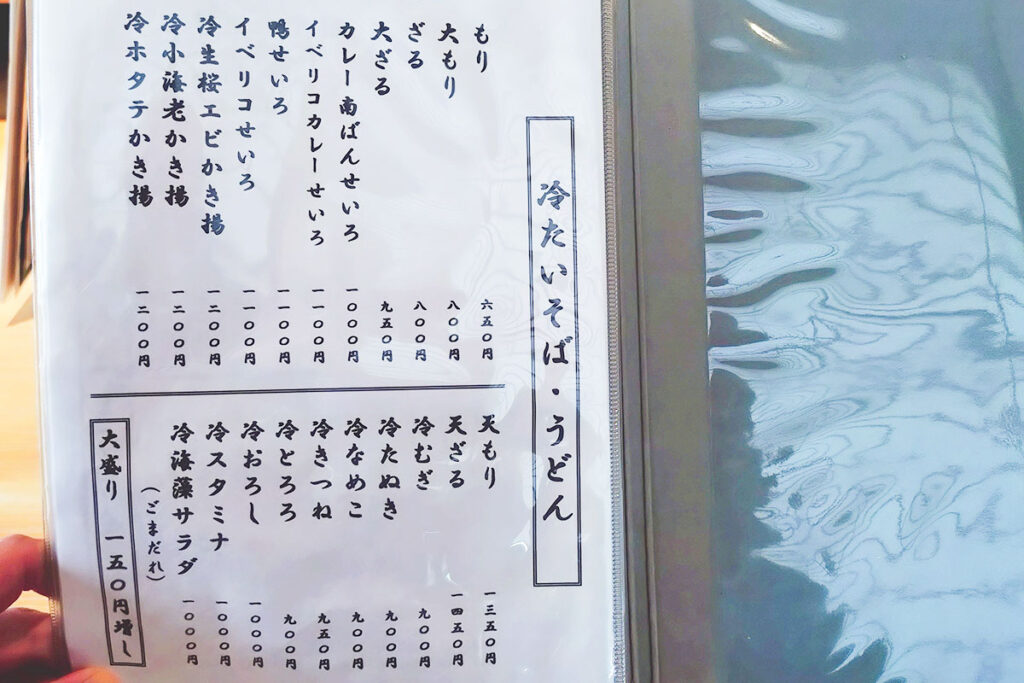 冷たいそば・うどん
もり 六五〇円
大もり 八〇〇円
ざる 八〇〇円
大ざる 九五〇円
カレー南ばんせいろ 一〇〇〇円
イベリコカレーせいろ 一一〇〇円
鴨せいろ 一一〇〇円
イベリコせいろ 一一〇〇円
冷生桜エビかき揚 一二〇〇円
冷小海老かき揚 一二〇〇円
冷ホタテかき揚 一二〇〇円
天もり 一三五〇円
天ざる 一四五〇円
冷むぎ 九〇〇円
冷たぬき 九〇〇円
冷なめこ 九〇〇円
冷きつね 九五〇円
冷とろろ 九〇〇円
冷おろし 一〇〇〇円
冷スタミナ 一〇〇〇円
冷海藻サラダ 一〇〇〇円
(ごまだれ)
大盛り 一五〇円増し